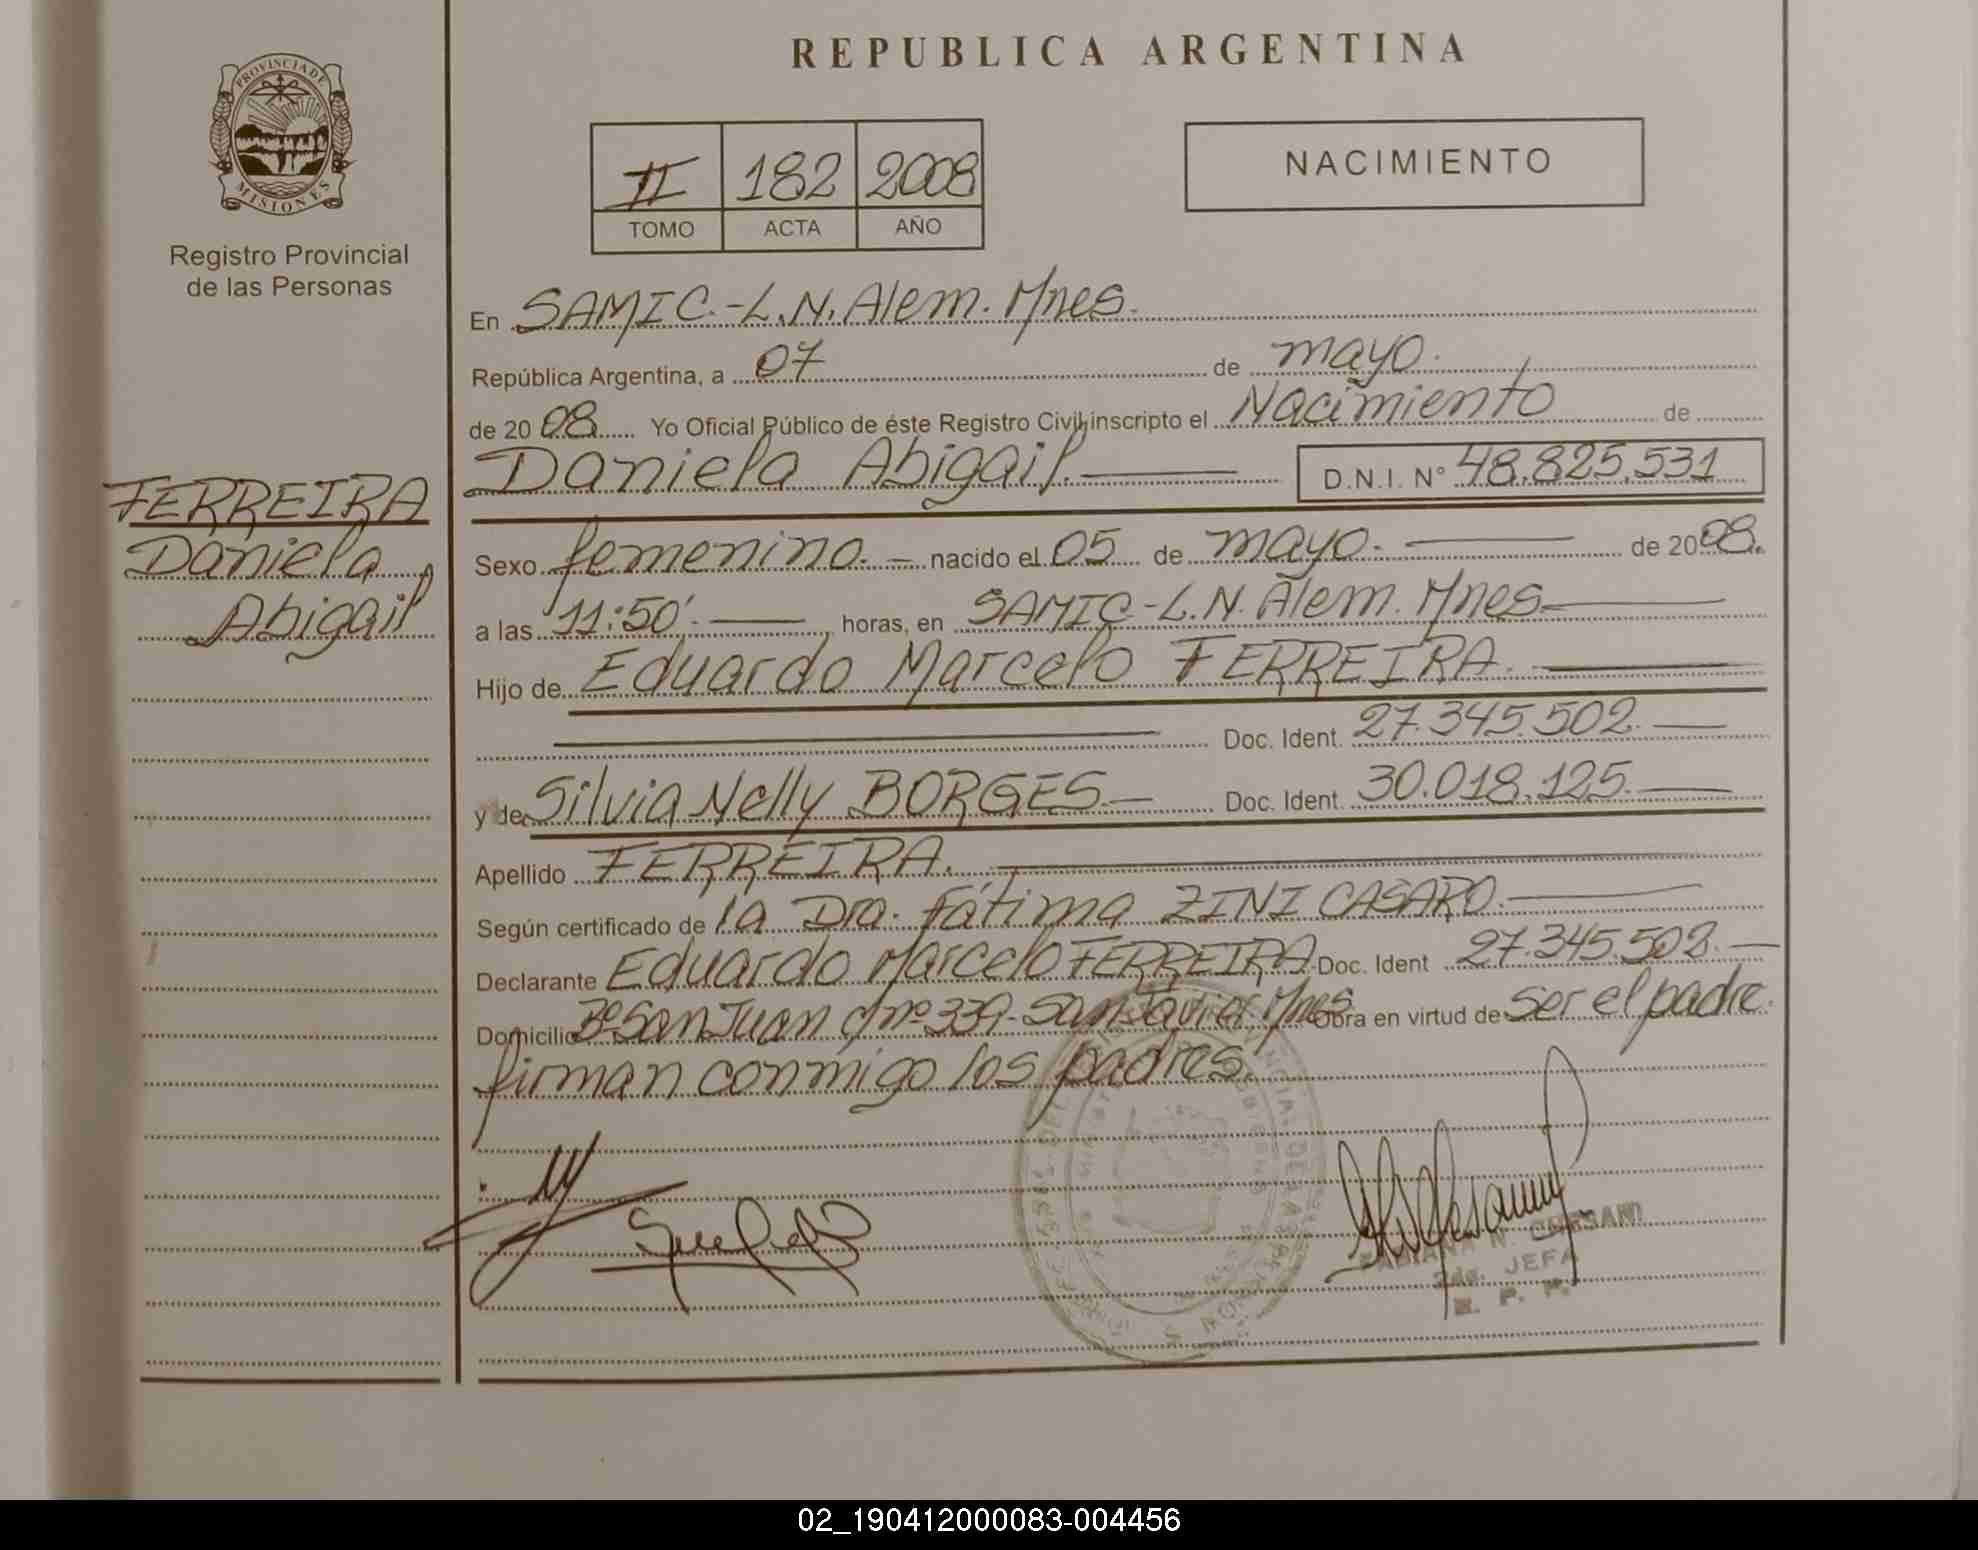 REPUBLICA ARGENTINA
PROVINCIA DE
MISIONES
Registro Provincial
de las Personas
II 182 2008
TOMO ACTA AÑO
NACIMIENTO
FERREIRA
Daniela
Abigail
En SAMIC.-L.N. Alem. Mnes.
República Argentina, a 07 de mayo.
de 2008 Yo Oficial Público de éste Registro Civil, inscripto el Nacimiento de
Daniela Abigail. D.N.I. Nº 48.825.531
Sexo femenino. nacido el 05 de mayo. de 2008.
a las 11:50'. horas, en SAMIC-L.N. Alem. Mnes.
Hijo de Eduardo Marcelo FERREIRA.
Doc. Ident. 27.345.502.
y de Silvia Nelly BORGES. Doc. Ident. 30.018.125.
Apellido FERREIRA.
Según certificado de la Dra. Fátima ZINI CASARO.
Declarante Eduardo Marcelo FERREIRA. Doc. Ident 27.345.502.
Domicilio Bº San Juan nº 339- San Javier Mnes. Obra en virtud de ser el padre.
firman conmigo los padres.
FABIANA N.
2da. JEFA
R. P. P.
02_190412000083-004456